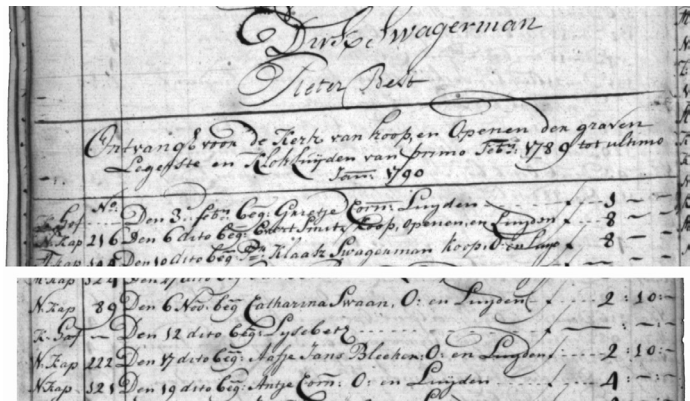 Dirk Swagerman
Pieter Best
Ontvangst voor de Kerk van koop, en Openen der graven
Legefste en Klokluyden van primo Feb: 1789 tot ultimo
Jan: 1790
No.
Den 3 feb: beg: Corn: Luyden 3
N.Kap 216 Den 6 dito beg: Smit, koop, openen, en Luyden f 8
Den 10 dito beg: Klaasz Swagerman koop, O: en f 8
N.Kap 89 Den 6 Nov: beg: Catharina Swaan, O: en Luyden f 2:10:-
Den 12 dito beg: Lysebet
N.Kap 222 Den 17 dito beg: Aafje Jans Bleeker: O: en Luyden f 2:10:-
N.Kap 121 Den 19 dito beg: Antje Corn: O: en Luyden 4